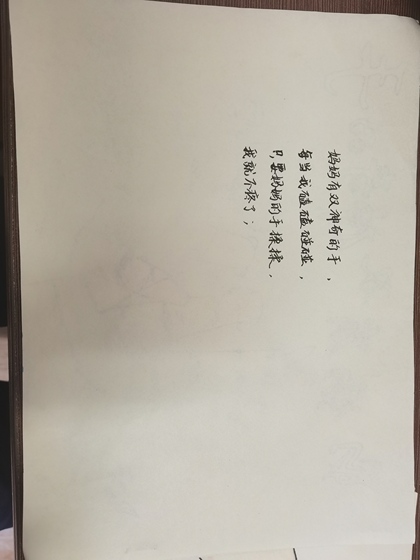 妈妈有双神奇的手，
每当我磕磕碰碰，
只要妈妈的手揉揉，
我就不疼了；